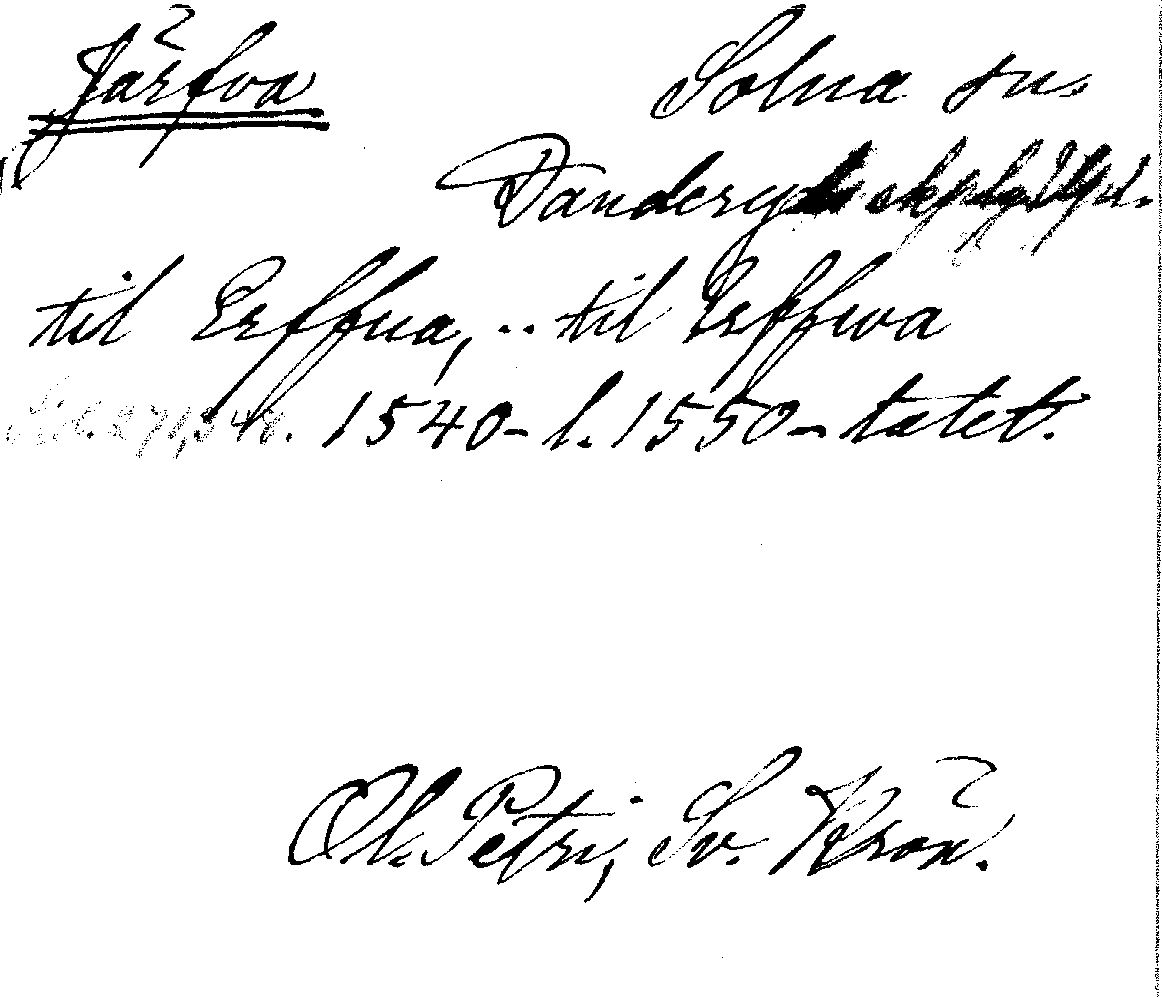 Järfva Solna sn.
Danderyds skplg Upl.
til Erffua, .. til Erffwa
S. 271, 340. 1540- l. 1550-talet.
Ol. Petri, Sv. Krön.